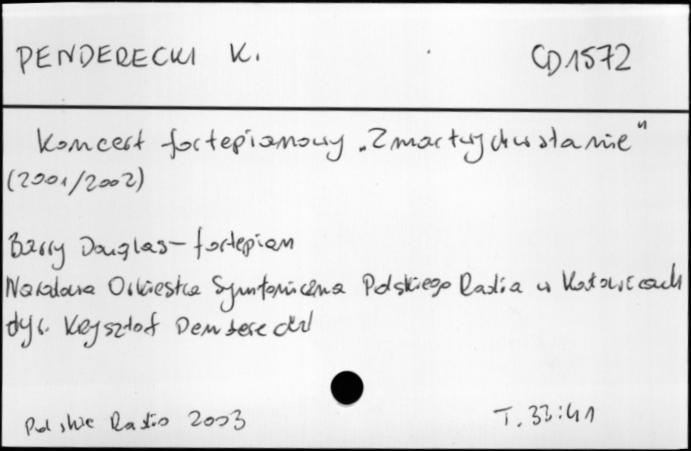 PENDERECKI K. CD1572
Koncert fortepianowy „Zmartwychwstanie"
(2001/2002)
Barry Douglas – fortepian
Narodowa Orkiestra Symfoniczna Polskiego Radia w Katowicach
dyr. Krzysztof Penderecki
Polskie Radio 2003 T. 33:41